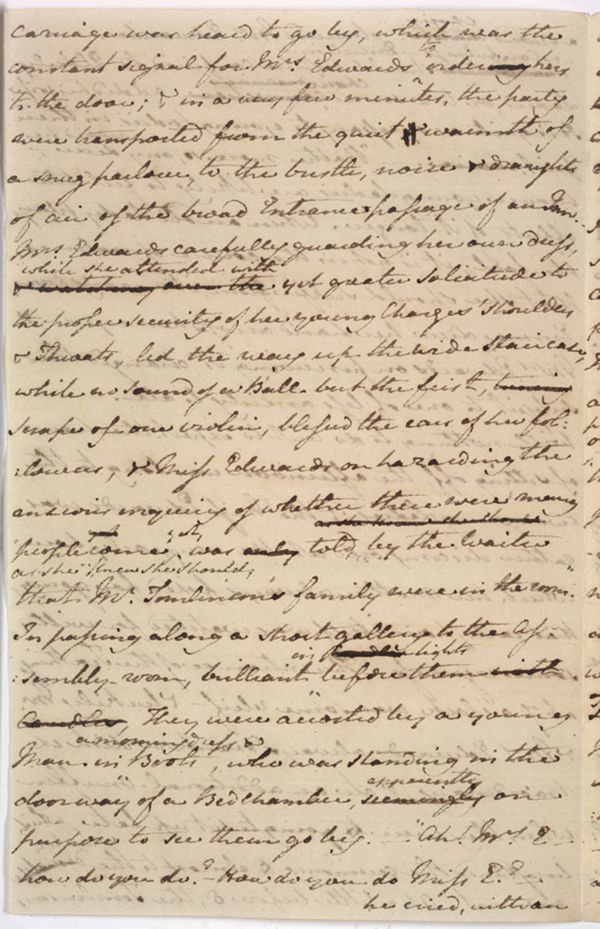 carriage was heard to go by, which was the
to
constant signal for Mrs Edwards ordering hers
to the door; & in a very few minutes, the party
were transported from the quiet & warmth of
a snug parlour, to the bustle, noise & draughts
of air of the broad Entrance-passage of an Inn.
Mrs Edwards carefully guarding her own dress,
while she attended with
& watching over the yet greater Solicitude to
the proper security of her young Charges' Shoulders
& Throats, led the way up the wide staircase,
while no sound of a Ball but the first, tuning
scrape of one violin, blessed the ears of her fol:
:lowers, & Miss Edwards on hazarding the
anxious enquiry of whether there were many
as she knew she should
people come yet, was only told by the Waiter
as she knew she should,
that Mr. Tomlinson's family were in the room."
In passing along a short gallery to the As:
in lights
:sembly-room, brilliant before them with
Candles, They were accosted by a young
a morning dress &
Man in Boots, who was standing in the
apparently
doorway of a Bedchamber, seemingly on
purpose to see them go by.— "Ah! Mrs E—
how do you do?—How do you do Miss E.?—
he cried, with an